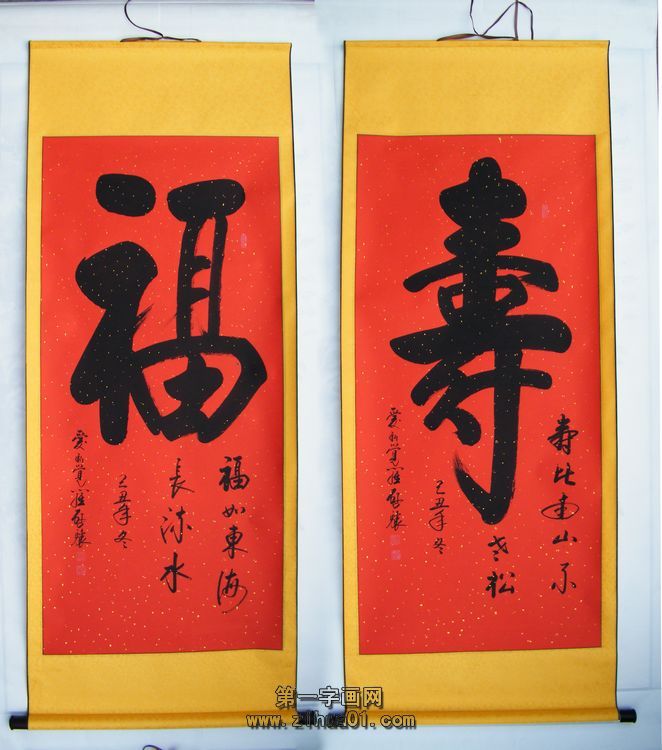 福
福如東海
長流水
己丑年冬
愛新覺羅啟驤
壽
壽比南山不
老松
己丑年冬
愛新覺羅啟驤
第一字画网
www.z1hua01.com